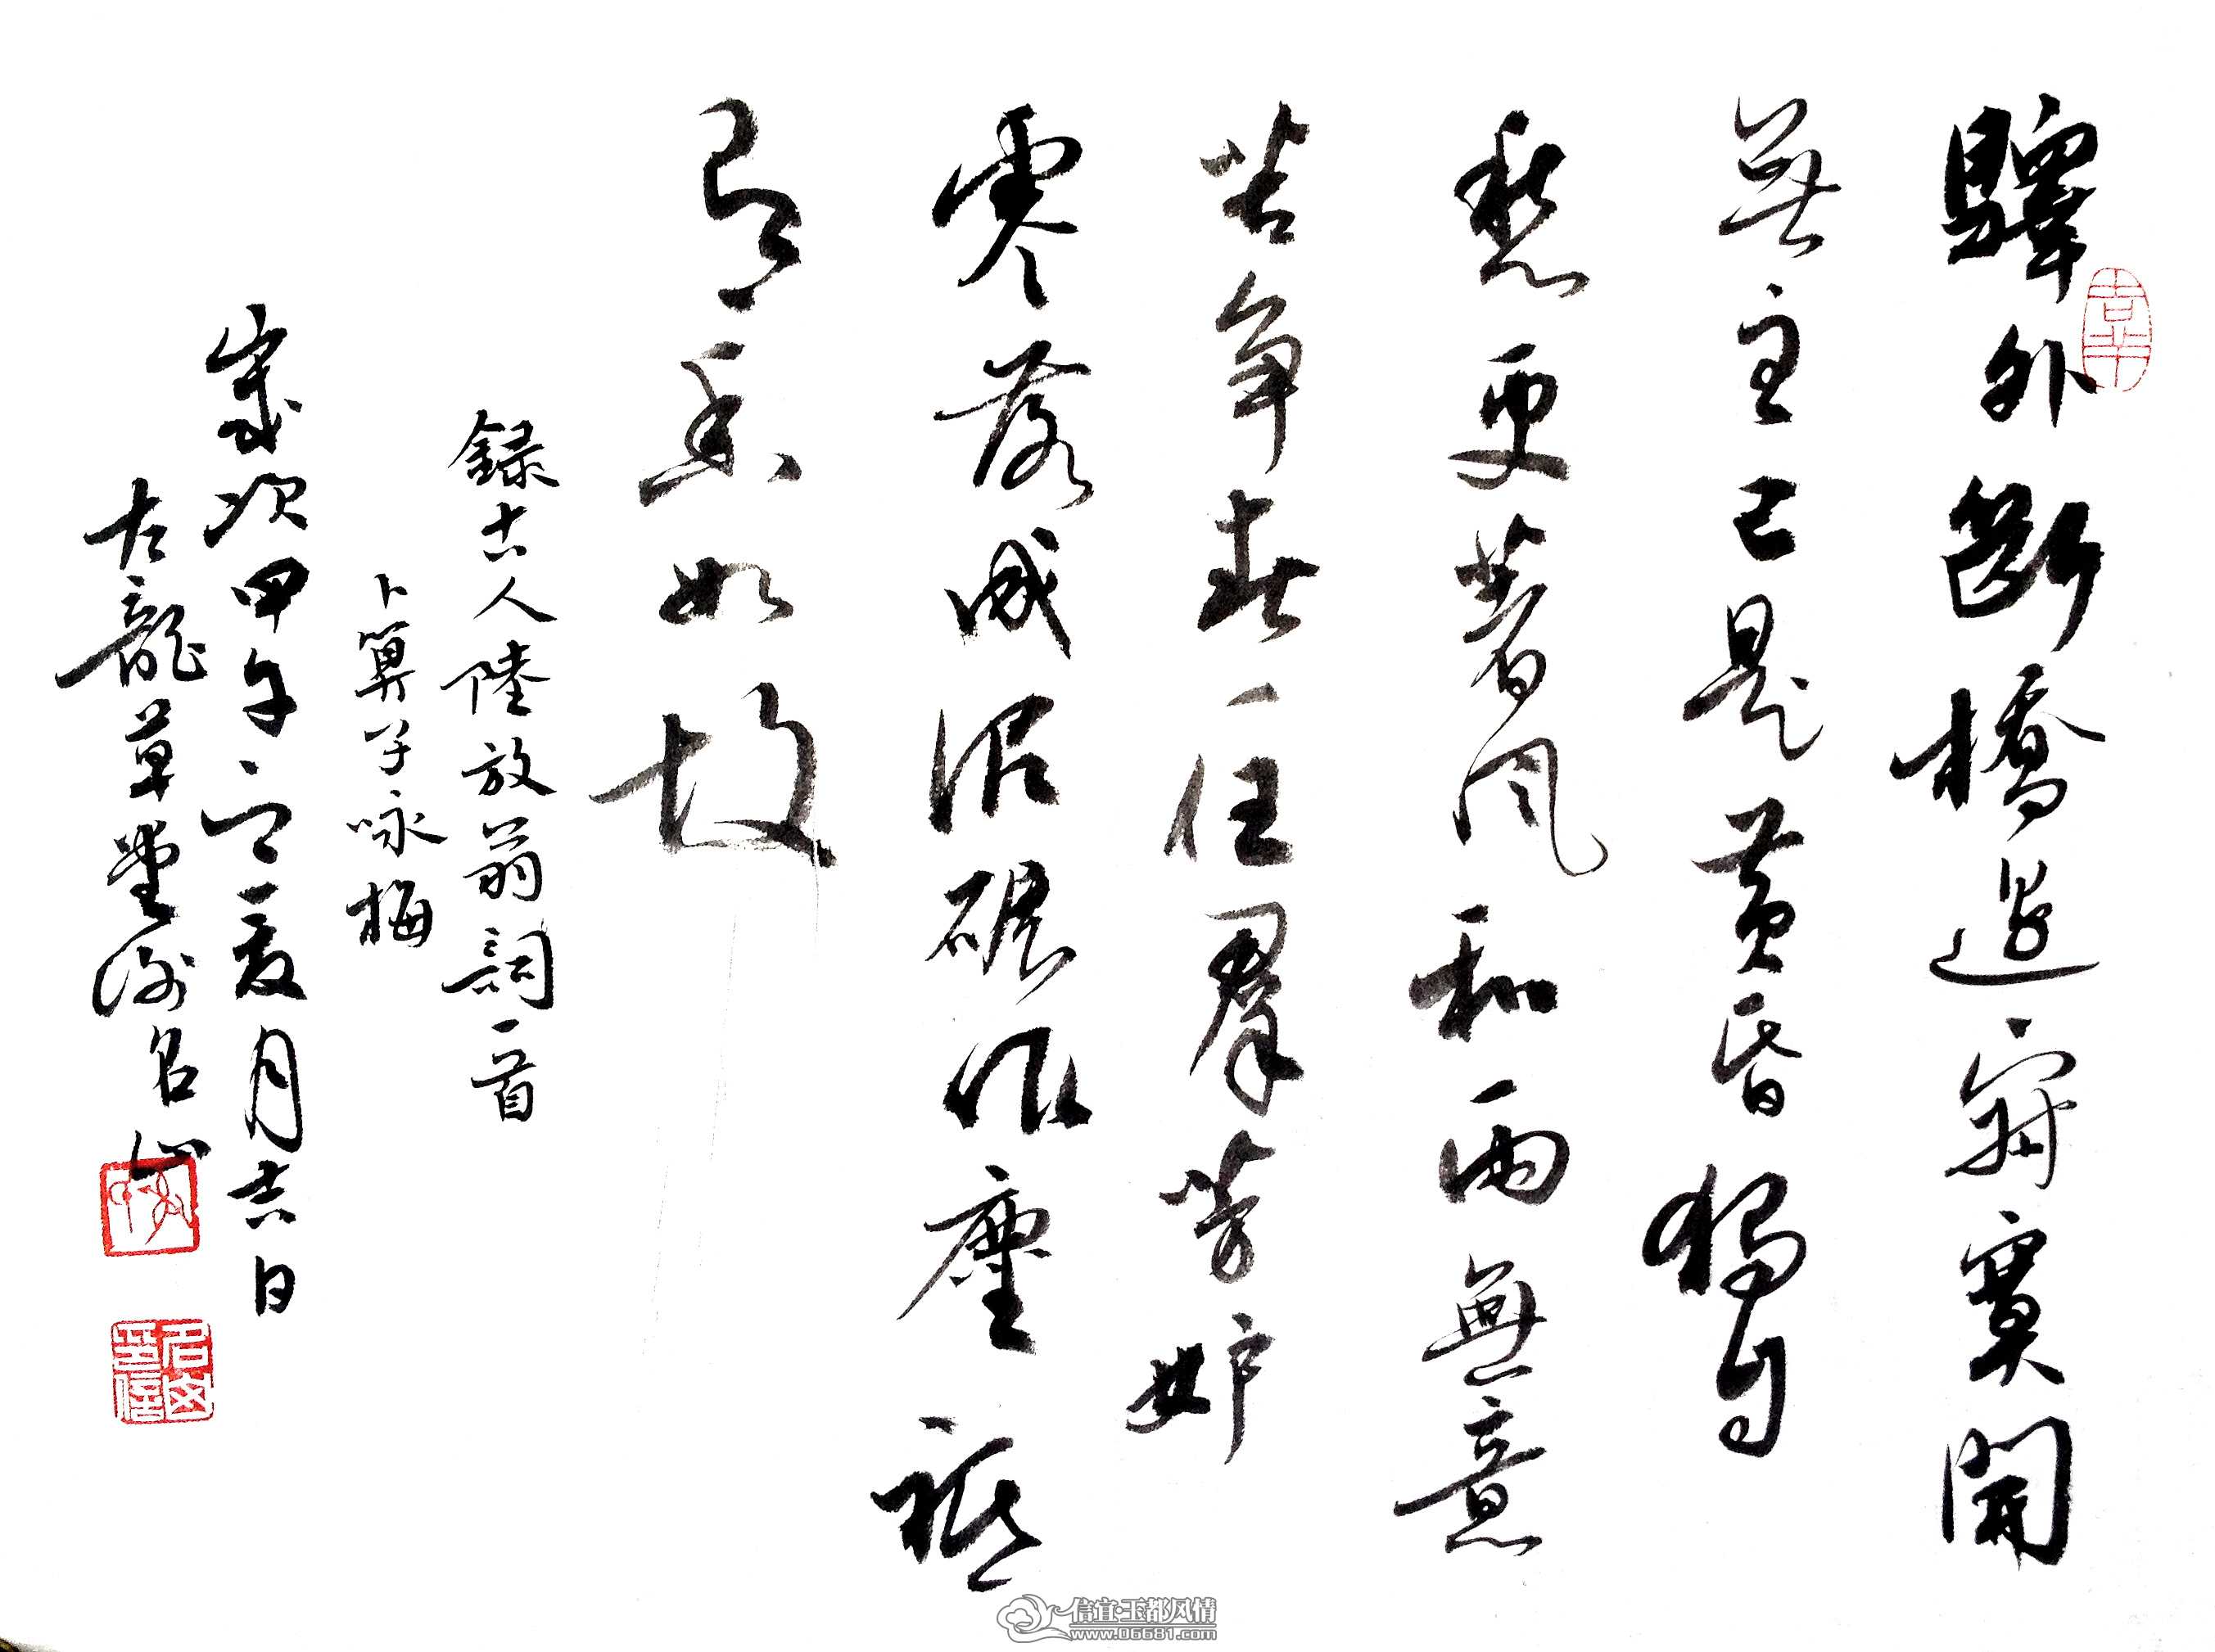 驛外斷橋邊寂寞開
無主已是黄昏獨自
愁更著風和雨無意
苦争春一任羣芳妒
零落成泥碾作塵祗
有香如故
録古人陸放翁詞一首
卜算子咏梅
歲次甲午之夏月吉日
左龍草堂 名
信宜·玉都风情
www.06681.com